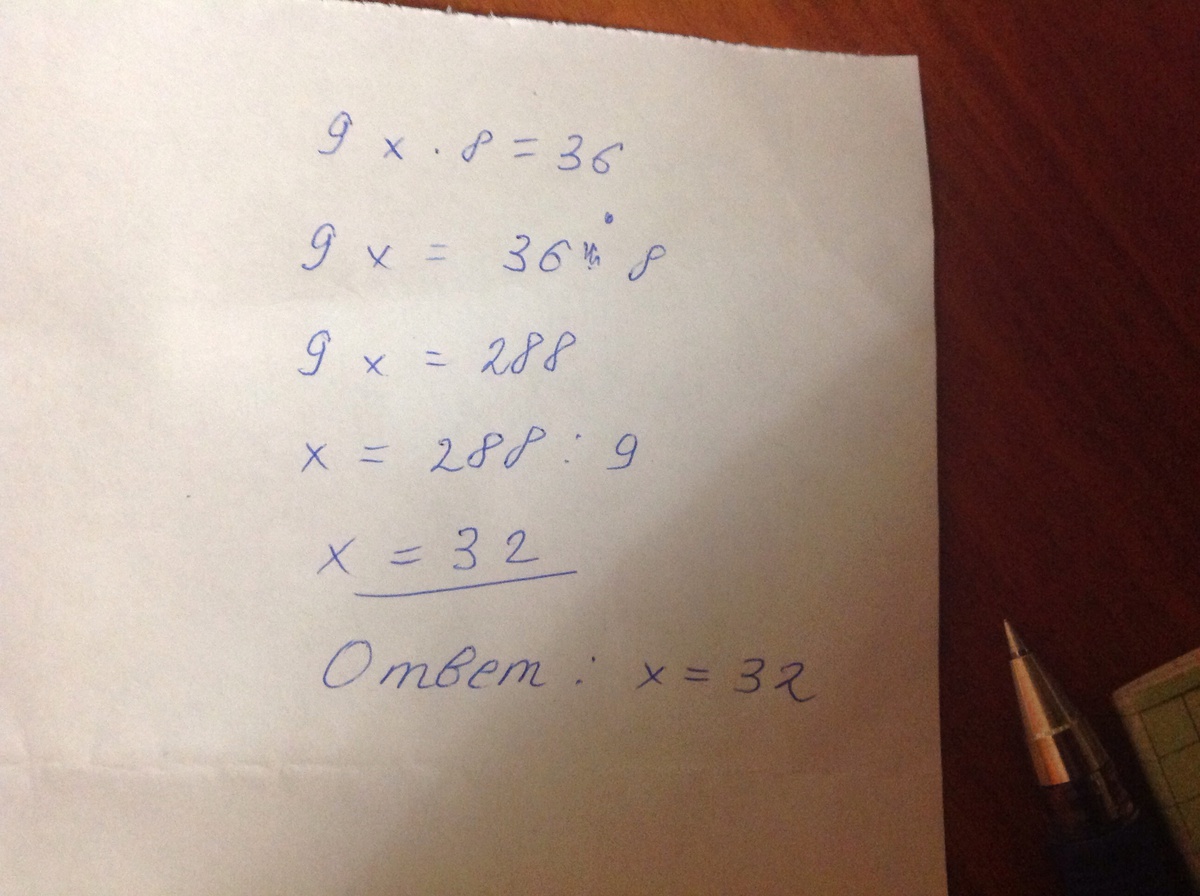 9 x · 8 = 36
9 x = 36 · 8
9 x = 288
x = 288 : 9
x = 32
Ответ : x = 32